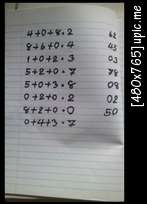 4+0+8.2 62
8+6+0.4 43
1+0+2.3 03
5+2+0.7 78
5+0+3.8 08
0+2+0.2 02
8+2+0.0 50
0+4+3.7
[480x765]upic.me